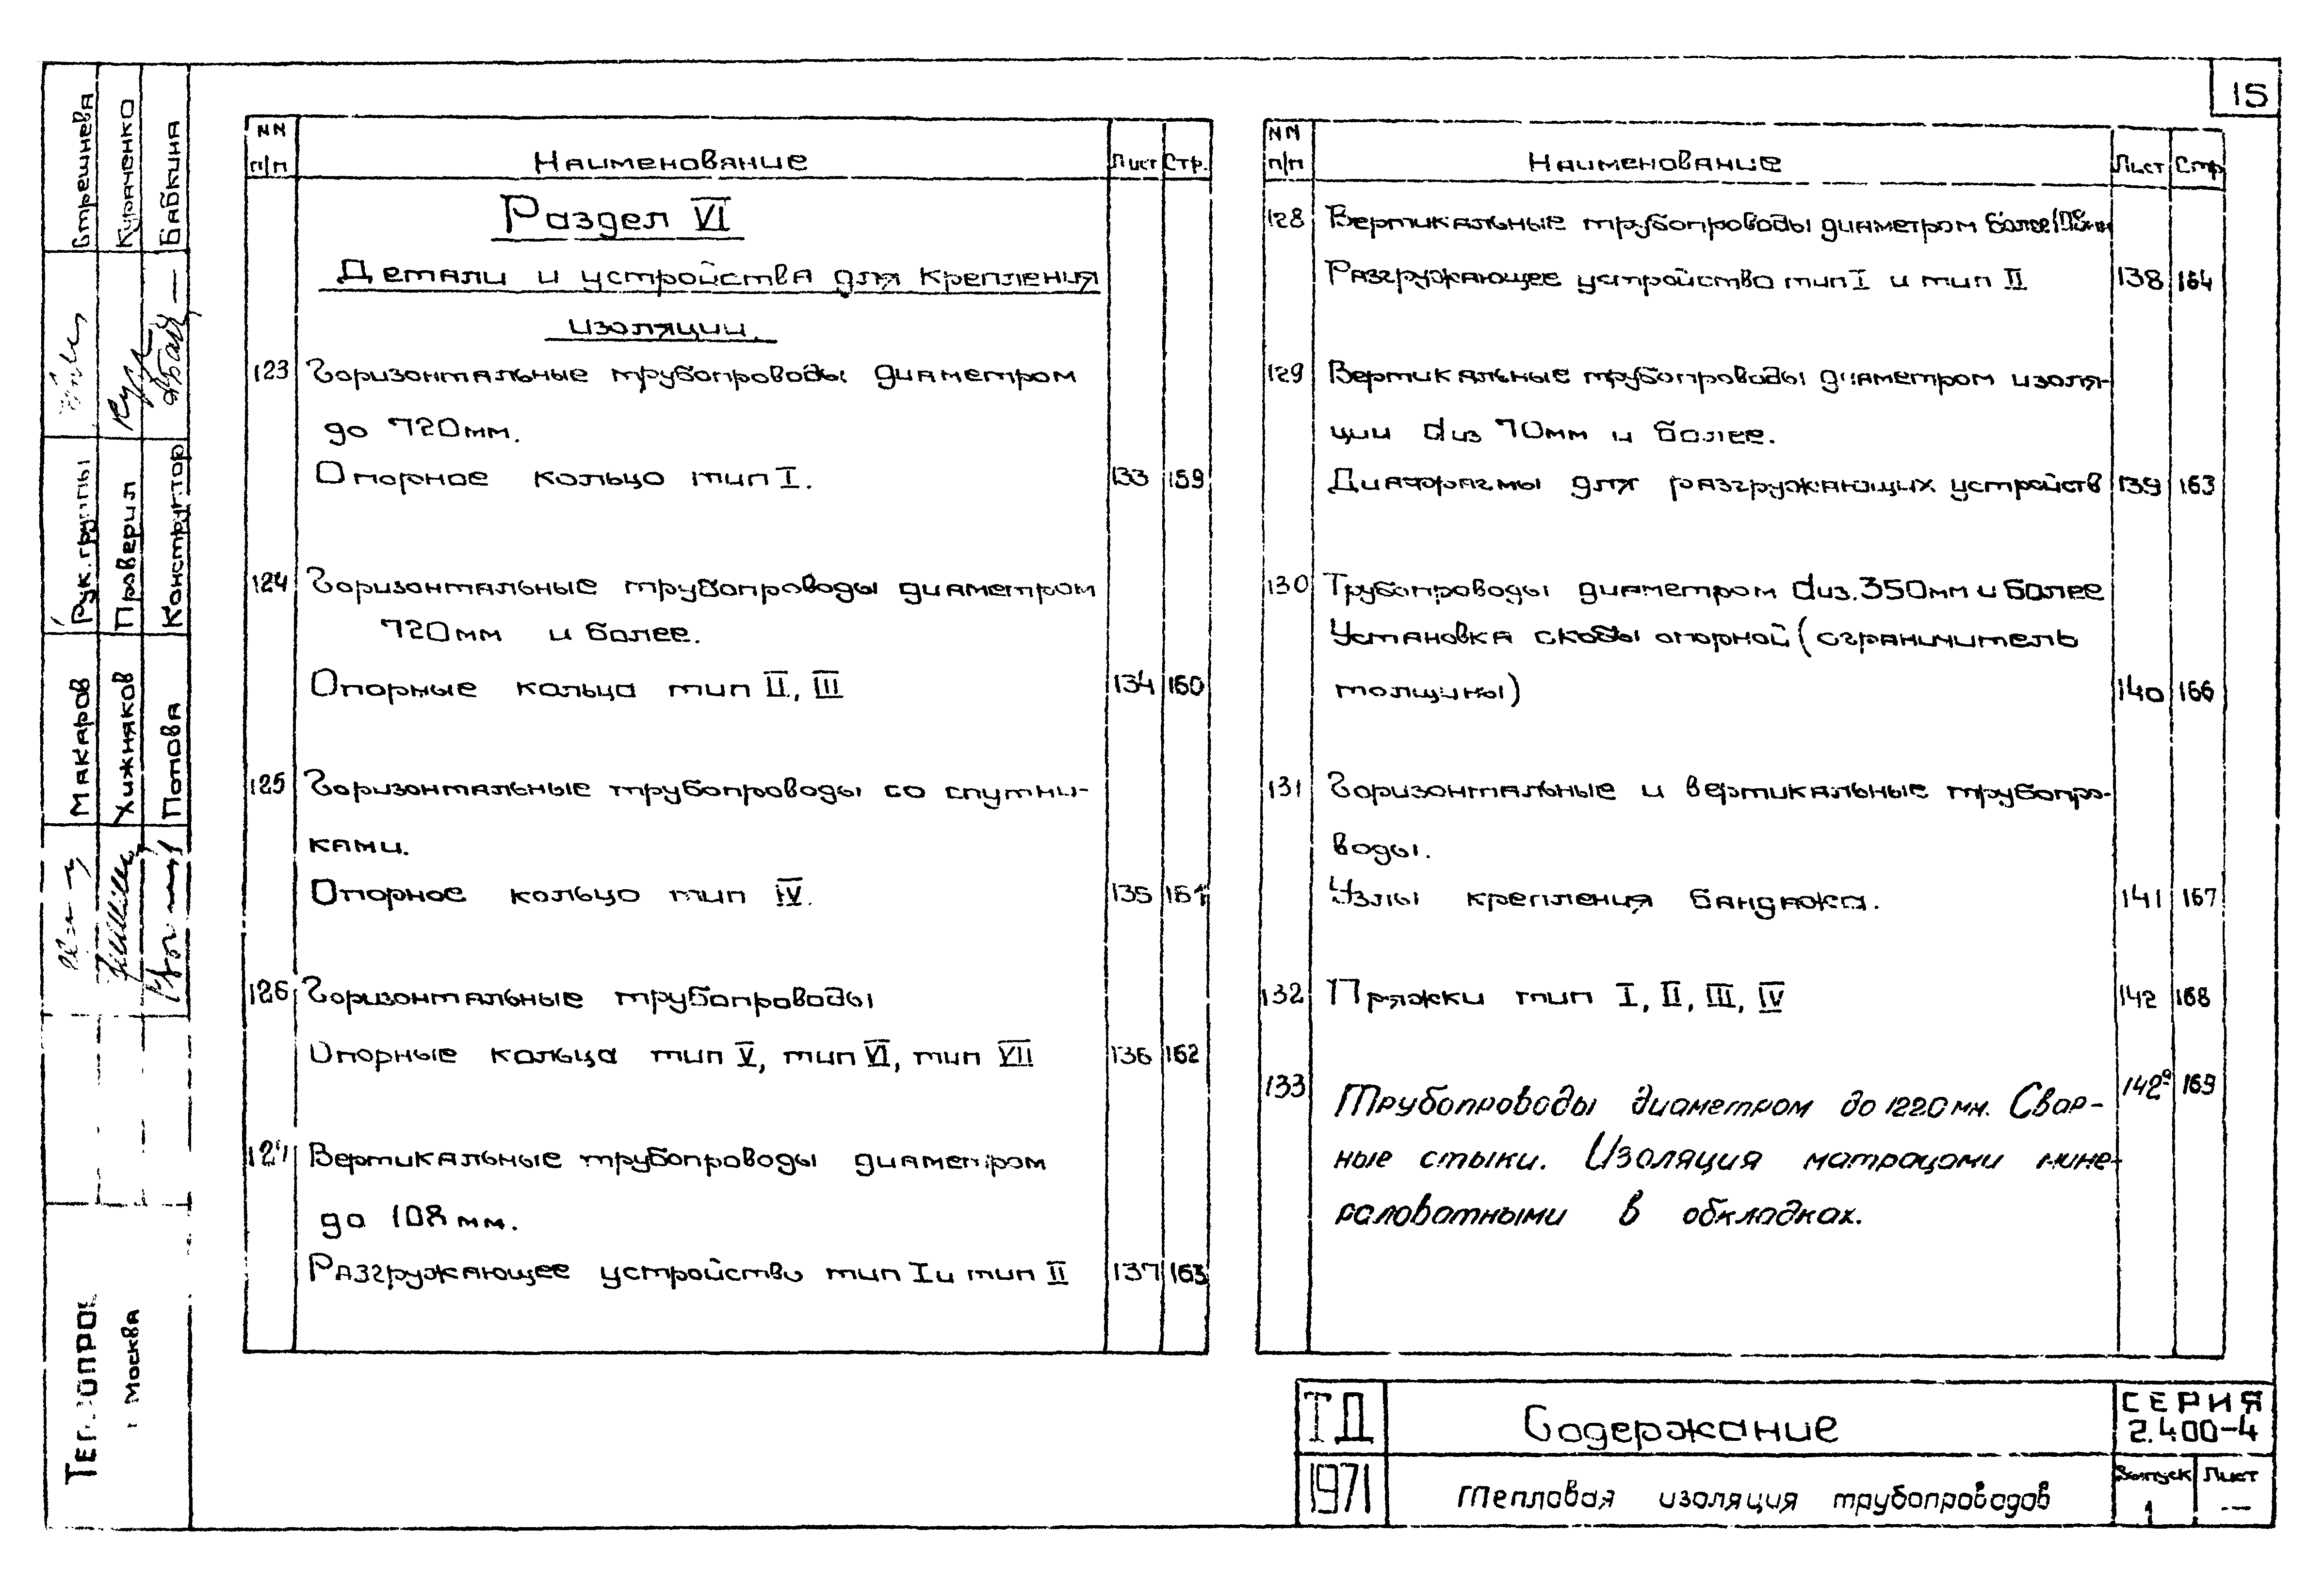 15
NN п/п Наименование Лист Стр.
Раздел VI
Детали и устройства для крепления
изоляции.
123 Горизонтальные трубопроводы диаметром
до 720мм.
Опорное кольцо тип I. 133 159
124 Горизонтальные трубопроводы диаметром
720мм и более.
Опорные кольца тип II, III 134 160
125 Горизонтальные трубопроводы со спутни-
ками.
Опорное кольцо тип IV. 135 161
126 Горизонтальные трубопроводы
Опорные кольца тип V, тип VI, тип VII 136 162
127 Вертикальные трубопроводы диаметром
до 108мм.
Разгружающее устройство тип I и тип II 137 163
NN п/п Наименование Лист Стр
128 Вертикальные трубопроводы диаметром более
Разгружающее устройство тип I и тип II 138 164
129 Вертикальные трубопроводы диаметром изоля-
ции dиз 70мм и более.
Диафрагмы для разгружающих устройств 139 163
130 Трубопроводы диаметром dиз. 350мм и более
Установка скобы опорной (ограничитель
толщины) 140 166
131 Горизонтальные и вертикальные трубопро-
воды.
Узлы крепления бандажа. 141 167
132 Пряжки тип I, II, III, IV 142 168
133 Трубопроводы диаметром до 1220мм. Свар- 142а 169
ные стыки. Изоляция матрацами мине-
раловатными в обкладках.
ТД Содержание СЕРИЯ
2.400-4
1971 Тепловая изоляция трубопроводов Выпуск Лист
1 —
Стрешнева
Кураченко
Бабкина
Рук. группы
Проверил
Конструктор
Макаров
Хижняков
Попова
г Москва